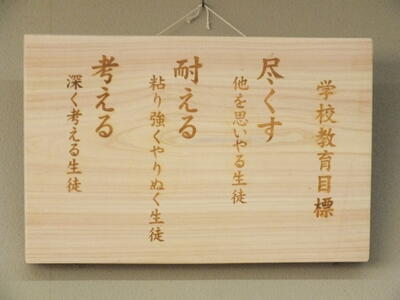 学校教育目標
尽くす
他を思いやる生徒
耐える
粘り強くやりぬく生徒
考える
深く考える生徒